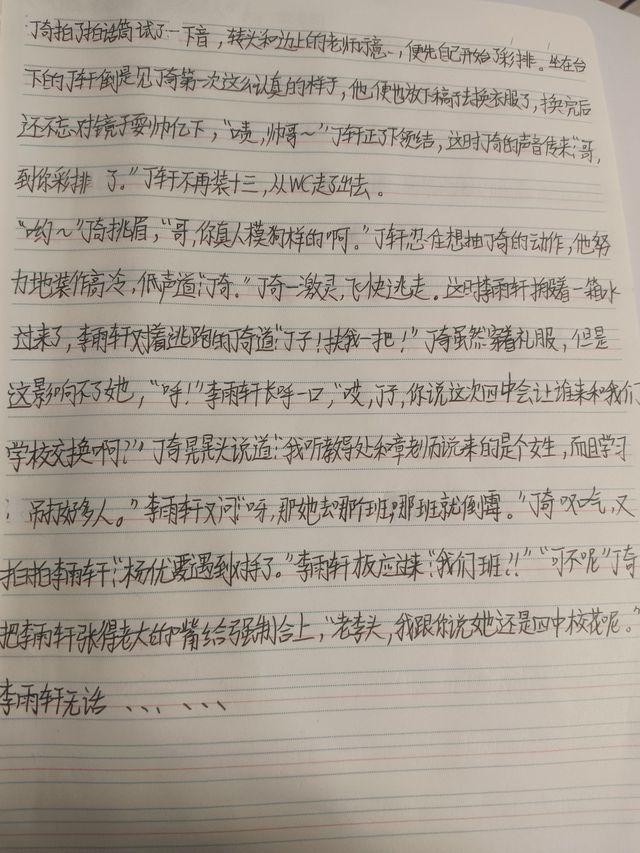 丁奇拍了拍话筒试了一下音，转头和边上的老师示意，便先自己开始了彩排。坐在台
下的丁轩倒是见丁奇第一次这么认真的样子，他便也放下稿子去换衣服了，换完后
还不忘对镜子耍帅亿下，“啧，帅哥～”丁轩正了下领结，这时丁奇的声音传来：“哥，
到你彩排了。”丁轩不再装十三，从WC走了出去。
“哟～”丁奇挑眉，“哥，你真人模狗样的啊。”丁轩忍住想抽丁奇的动作，他努
力地装作高冷，低声道：“丁奇。”丁奇一激灵，飞快逃走。这时李雨轩拥着一箱水
过来了，李雨轩对着逃跑的丁奇道：“丁子！扶我一把！”丁奇虽然穿着礼服，但是
这影响不了她，“呼！”李雨轩长呼一口，“哎，丁子，你说这次四中会让谁来和我们
学校交换啊？”丁奇晃晃头说道：“我听教导处和章老师说来的是个女生，而且学习
吊打好多人。”李雨轩又问：“呀，那她去哪个班，那班就倒霉。”丁奇叹口气，又
拍拍李雨轩：“杨优要遇到对手了。”李雨轩反应过来：“我们班？！”“可不呢”丁奇
把李雨轩张得老大的嘴给强制合上，“老李头，我跟你说她还是四中校花呢。”
李雨轩无话、、、、、、